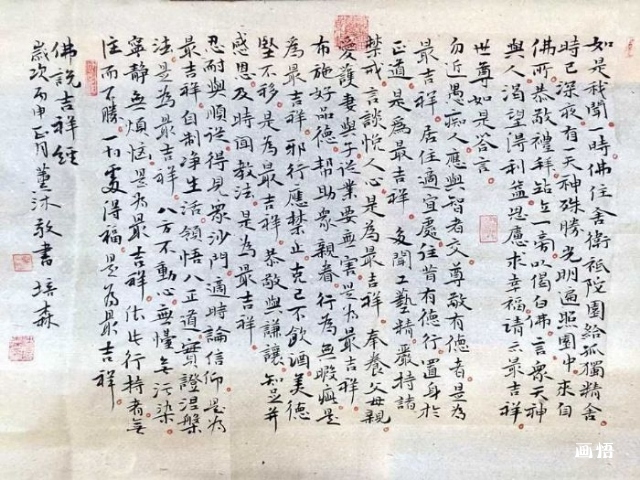 如是我聞一時佛住舍衛祇陀園給孤獨精舍
時已深夜有一天神殊勝光明遍照園中來自
佛所恭敬禮拜站立一旁以偈白佛言眾天神
與人渴望得利益思慮求幸福請示最吉祥
世尊如是答言
勿近愚痴人應與智者交尊敬有德者是為
最吉祥居住適宜處往昔有德行置身於
正道是為最吉祥多聞工藝精嚴持諸
禁戒言談悅人心是為最吉祥奉養父母親
愛護妻與子從業要無害是為最吉祥
布施好品德幫助眾親眷行為無瑕疵是
為最吉祥邪行應禁止克己不飲酒美德
堅不移是為最吉祥恭敬與謙讓知足并
感恩及時聞教法是為最吉祥
忍耐與順從得見眾沙門適時論信仰是為
最吉祥自制淨生活領悟八正道實證涅槃
法是為最吉祥八方不動心無懼無污染
寧靜無煩惱是為最吉祥依此行持者無
往而不勝一切處得福是為最吉祥
佛說吉祥經
歲次丙申正月董沐敬書培森
画悟